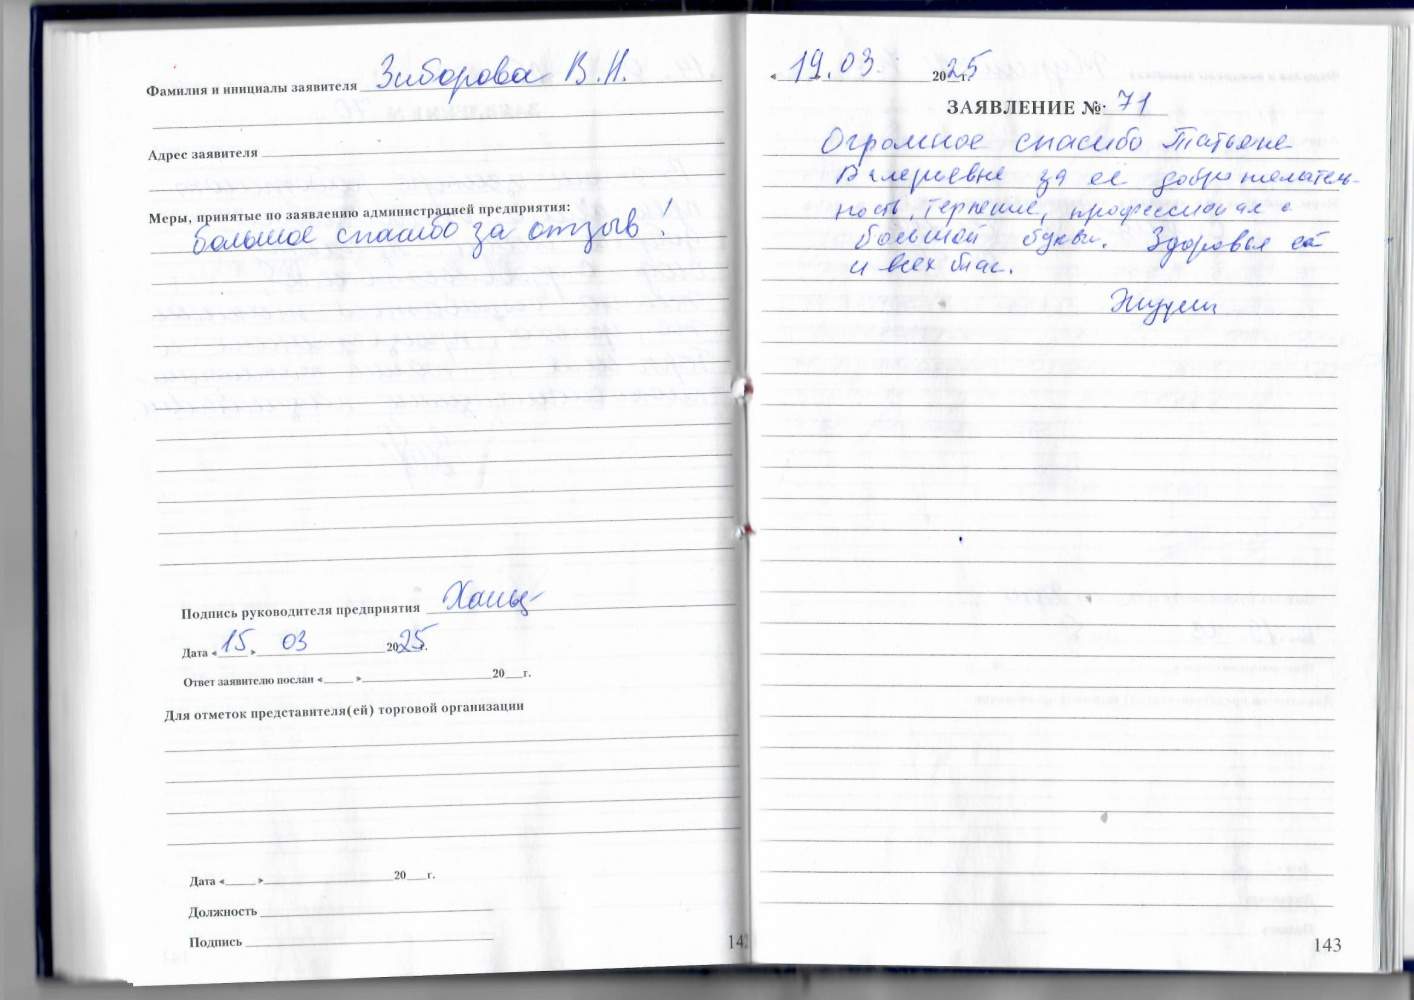 Фамилия и инициалы заявителя Зиборова В.Н.
Адрес заявителя
Меры, принятые по заявлению администрацией предприятия:
большое спасибо за отзыв!
Подпись руководителя предприятия
Дата «15» 03 2025г.
Ответ заявителю послан «____» ____ 20__г.
Для отметок представителя(ей) торговой организации
Дата «____» ____ 20__г.
Должность
Подпись
142
« 19.03. 2025г.
ЗАЯВЛЕНИЕ № 71
Огромное спасибо Татьяне
Валерьевне за её доброжелатель-
ность, терпение, профессионал с
большой буквы. Здоровья ей
и всех благ.
143